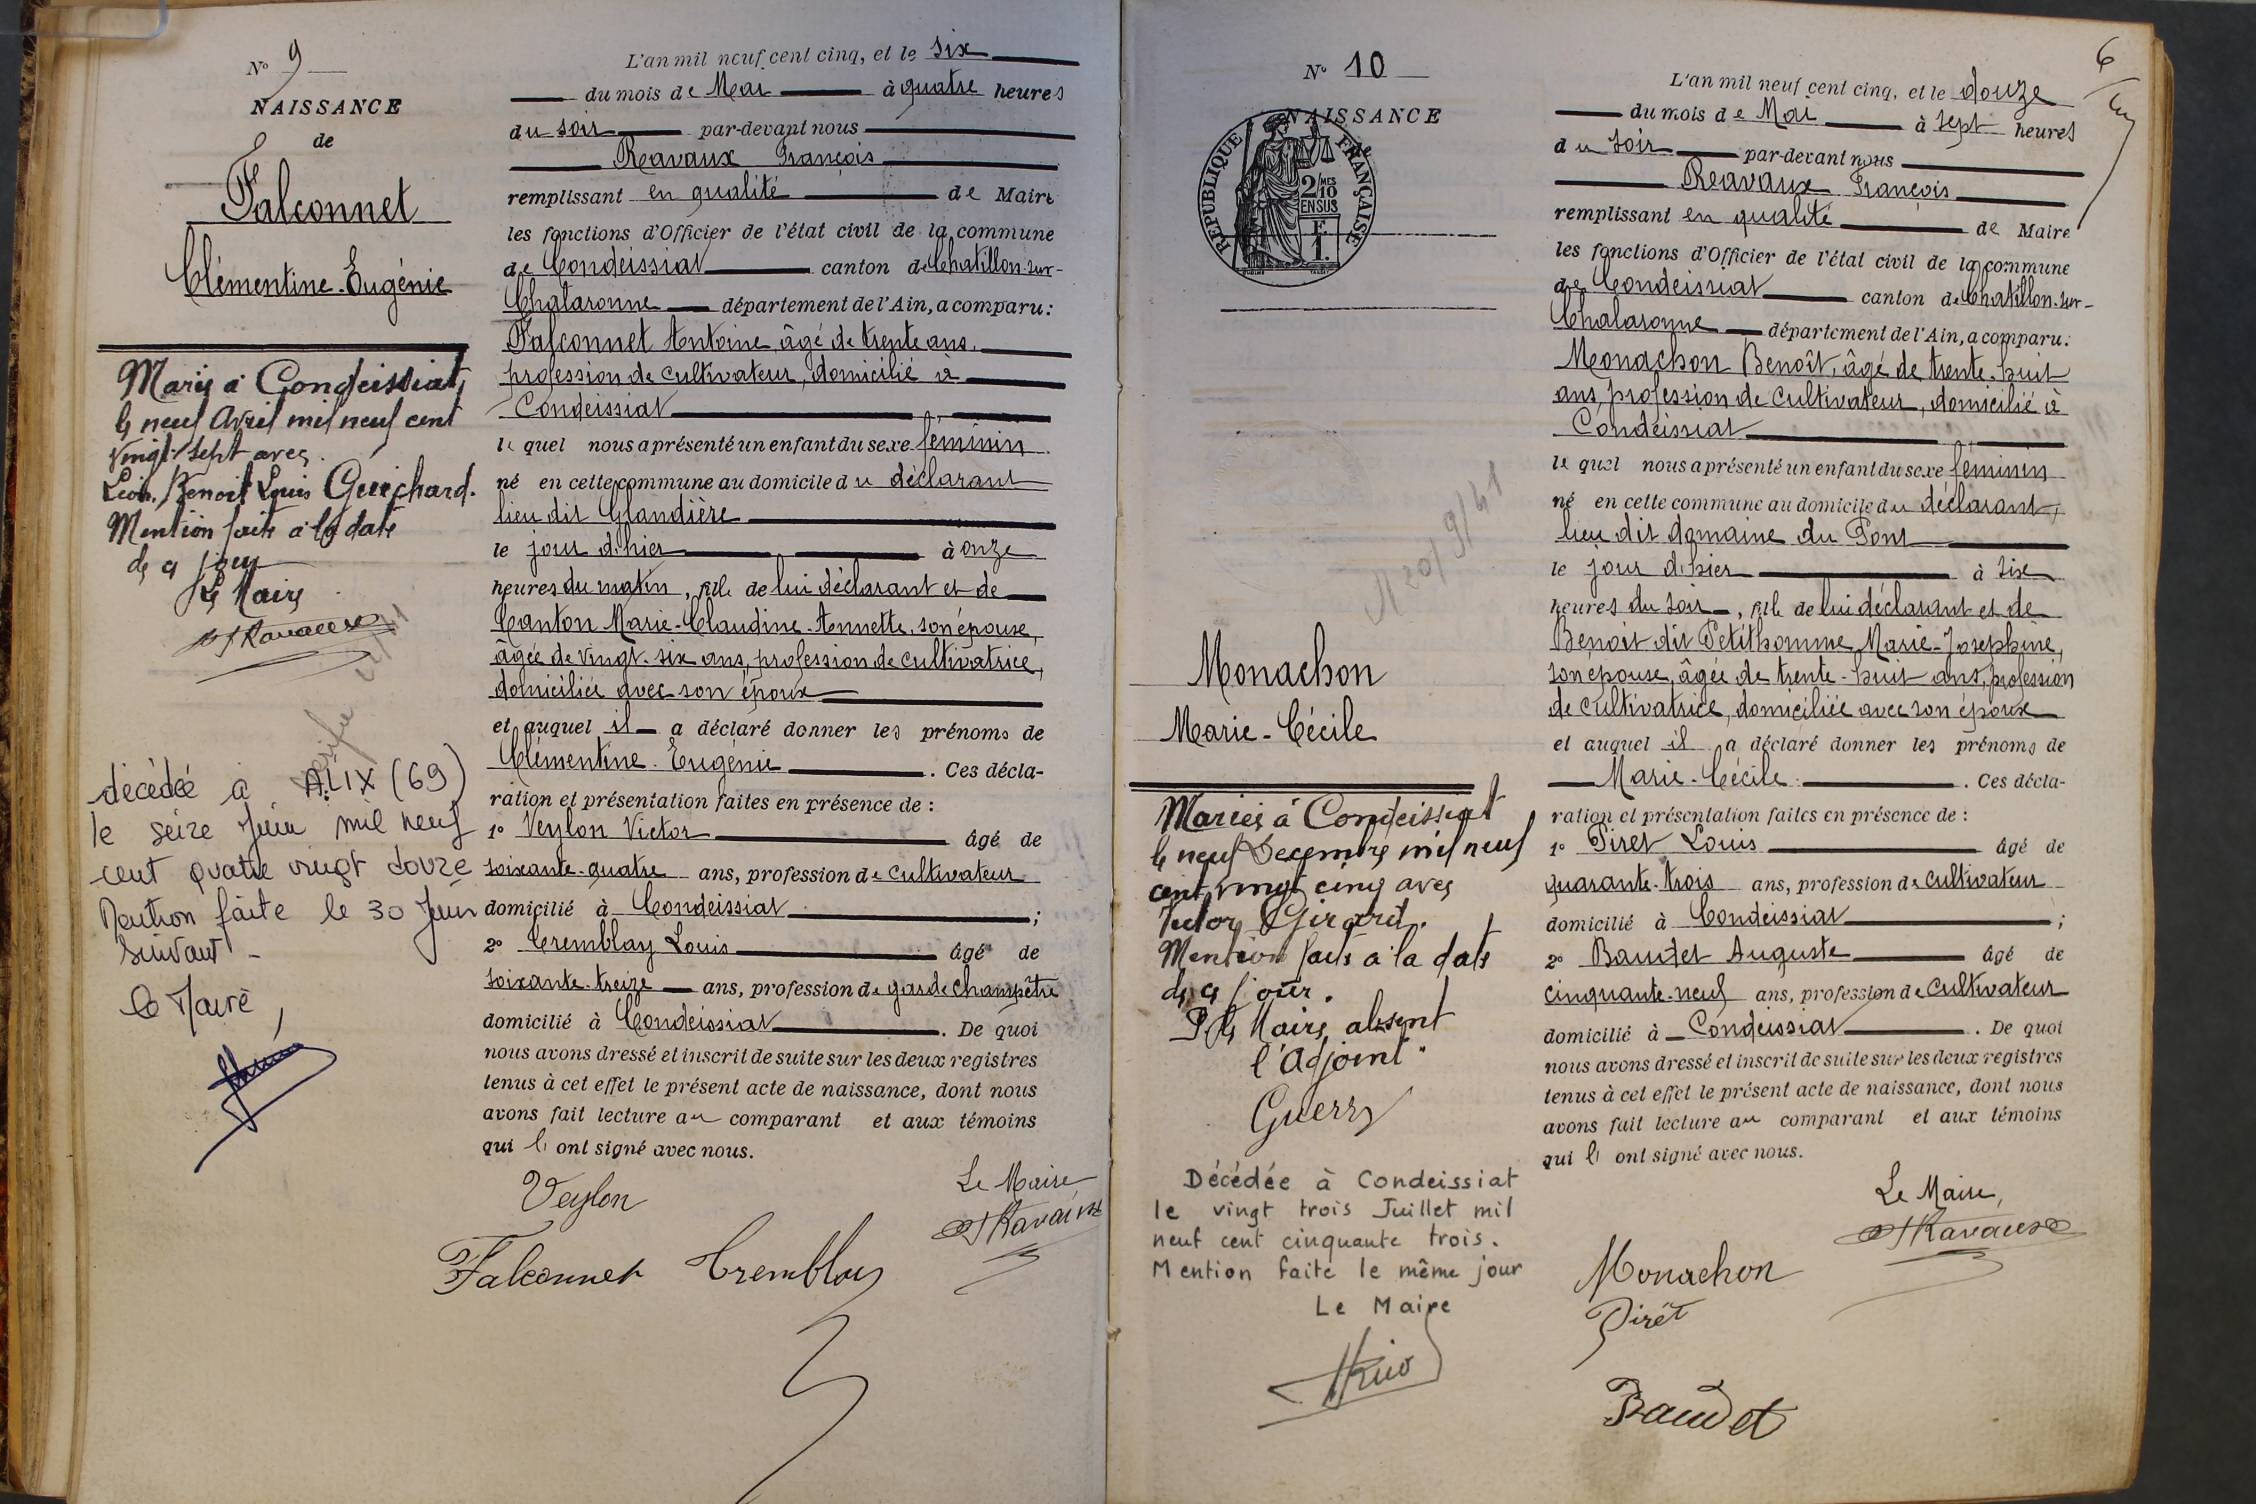 N° 9
NAISSANCE
de
Falconnet
Clémentine-Eugénie
Mariée à Condeissiat,
le neuf Avril mil neuf cent
vingt-sept avec
Léon, Benoit Louis Guichard.
Mention faite à la date
de ce jour
Le Maire
décédée à ALIX (69)
le seize Juin mil neuf
cent quatre vingt douze
Mention faite le 30 Juin
suivant -
Le Maire,
L'an mil neuf cent cinq, et le six
du mois de Mai à quatre heures
du soir par-devant nous
Reavaux François
remplissant en qualité de Maire
les fonctions d'Officier de l'état civil de la commune
de Condeissiat canton de Chatillon-sur-
Chalaronne département de l'Ain, a comparu:
Falconnet Antoine, âgé de trente ans,
profession de cultivateur, domicilié à
Condeissiat
le quel nous a présenté un enfant du sexe féminin
né en cette commune au domicile du déclarant
lieu dit Glandière
le jour d'hier à onze
heures du matin, fille de lui déclarant et de
Canton Marie-Claudine-Annette, son épouse,
âgée de vingt-six ans, profession de cultivatrice,
domiciliée avec son époux
et auquel il a déclaré donner les prénoms de
Clémentine-Eugénie. Ces décla-
ration et présentation faites en présence de :
1° Veylon Victor âgé de
soixante-quatre ans, profession de cultivateur
domicilié à Condeissiat ;
2° Tremblay Louis âgé de
soixante-treize ans, profession de garde champêtre
domicilié à Condeissiat. De quoi
nous avons dressé et inscrit de suite sur les deux registres
tenus à cet effet le présent acte de naissance, dont nous
avons fait lecture au comparant et aux témoins
qui l' ont signé avec nous.
Veylon
Le Maire
Falconnet Tremblay
6
N° 10
NAISSANCE
de
RÉPUBLIQUE FRANÇAISE
2/MES
10
EN SUS
F
1.
Monachon
Marie-Cécile
Mariée à Condeissiat
le neuf Décembre mil neuf
cent vingt cinq avec
Victor Girard.
Mention faite à la date
de ce jour.
P le Maire absent
l'Adjoint
Guerry
Décédée à Condeissiat
le vingt trois Juillet mil
neuf cent cinquante trois.
Mention faite le même jour
Le Maire
L'an mil neuf cent cinq, et le douze
du mois de Mai à sept heures
du soir par-devant nous
Reavaux François
remplissant en qualité de Maire
les fonctions d'Officier de l'état civil de la commune
de Condeissiat canton de Chatillon-sur-
Chalaronne département de l'Ain, a comparu:
Monachon Benoît, âgé de trente-huit
ans, profession de cultivateur, domicilié à
Condeissiat
le quel nous a présenté un enfant du sexe féminin
né en cette commune au domicile du déclarant,
lieu dit domaine du Pont
le jour d'hier à six
heures du soir, fille de lui déclarant et de
Benoit dit Petithomme Marie-Joséphine,
son épouse, âgée de trente-huit ans, profession
de cultivatrice, domiciliée avec son époux
et auquel il a déclaré donner les prénoms de
Marie-Cécile. Ces décla-
ration et présentation faites en présence de :
1° Piret Louis âgé de
quarante-trois ans, profession de cultivateur
domicilié à Condeissiat ;
2° Baudet Auguste âgé de
cinquante-neuf ans, profession de cultivateur
domicilié à Condeissiat. De quoi
nous avons dressé et inscrit de suite sur les deux registres
tenus à cet effet le présent acte de naissance, dont nous
avons fait lecture au comparant et aux témoins
qui l' ont signé avec nous.
Le Maire,
Monachon
Piret
Baudet